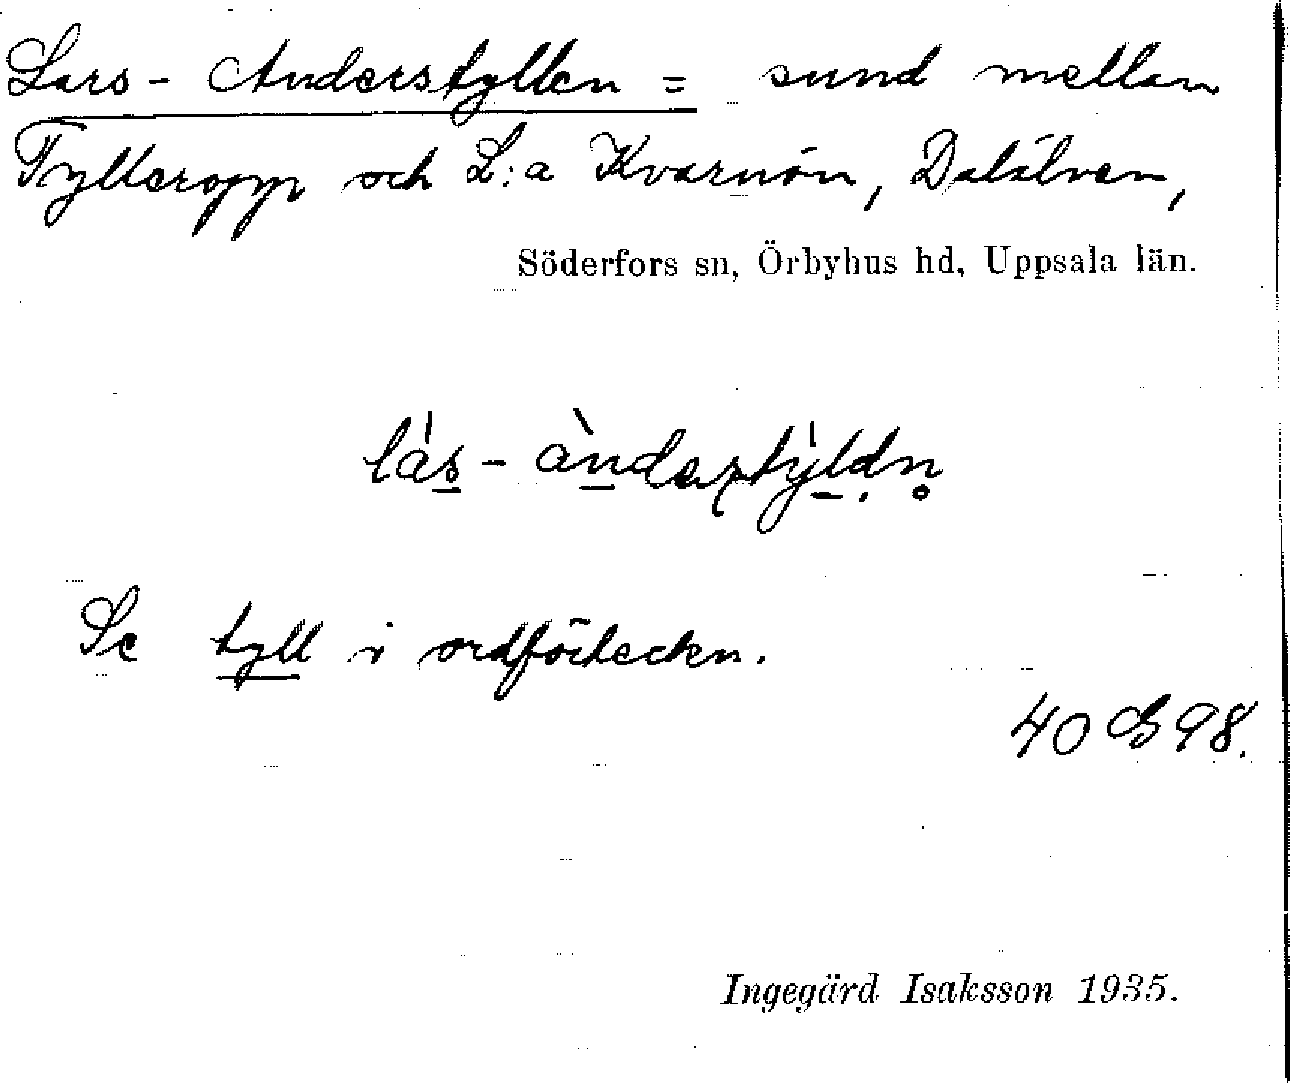 Lars-Anderstyllen = sund mellan
Tylleropp och L:a Kvarnön, Dalälven,
Söderfors sn, Örbyhus hd, Uppsala län.
Se tyll i ordförtecken.
40 B 98.
Ingegärd Isaksson 1935.